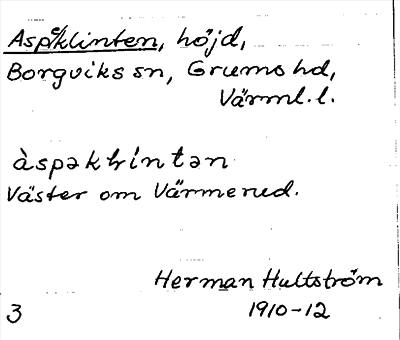 Aspeklinten, höjd,
Borgviks sn, Grums hd,
Värml. l.
àspəklrintən
Väster om Värmerud.
Herman Hultström
3 1910-12